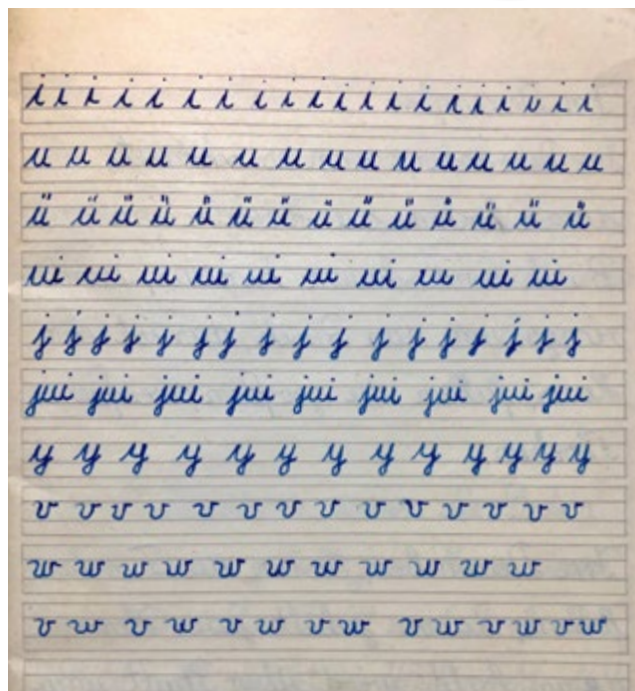 i i i i i i i i i i i i i i i i i i i i i i
u u u u u u u u u u u u u u u
ü ü ü ü ü ü ü ü ü ü ü ü ü ü
ui ui ui ui ui ui ui ui ui ui
j j j j j j j j j j j j j j j j j
jui jui jui jui jui jui jui jui jui
y y y y y y y y y y y y y
v v v v v v v v v v v v v v
w w w w w w w w w w w
v w v w v w v w v w v w v w